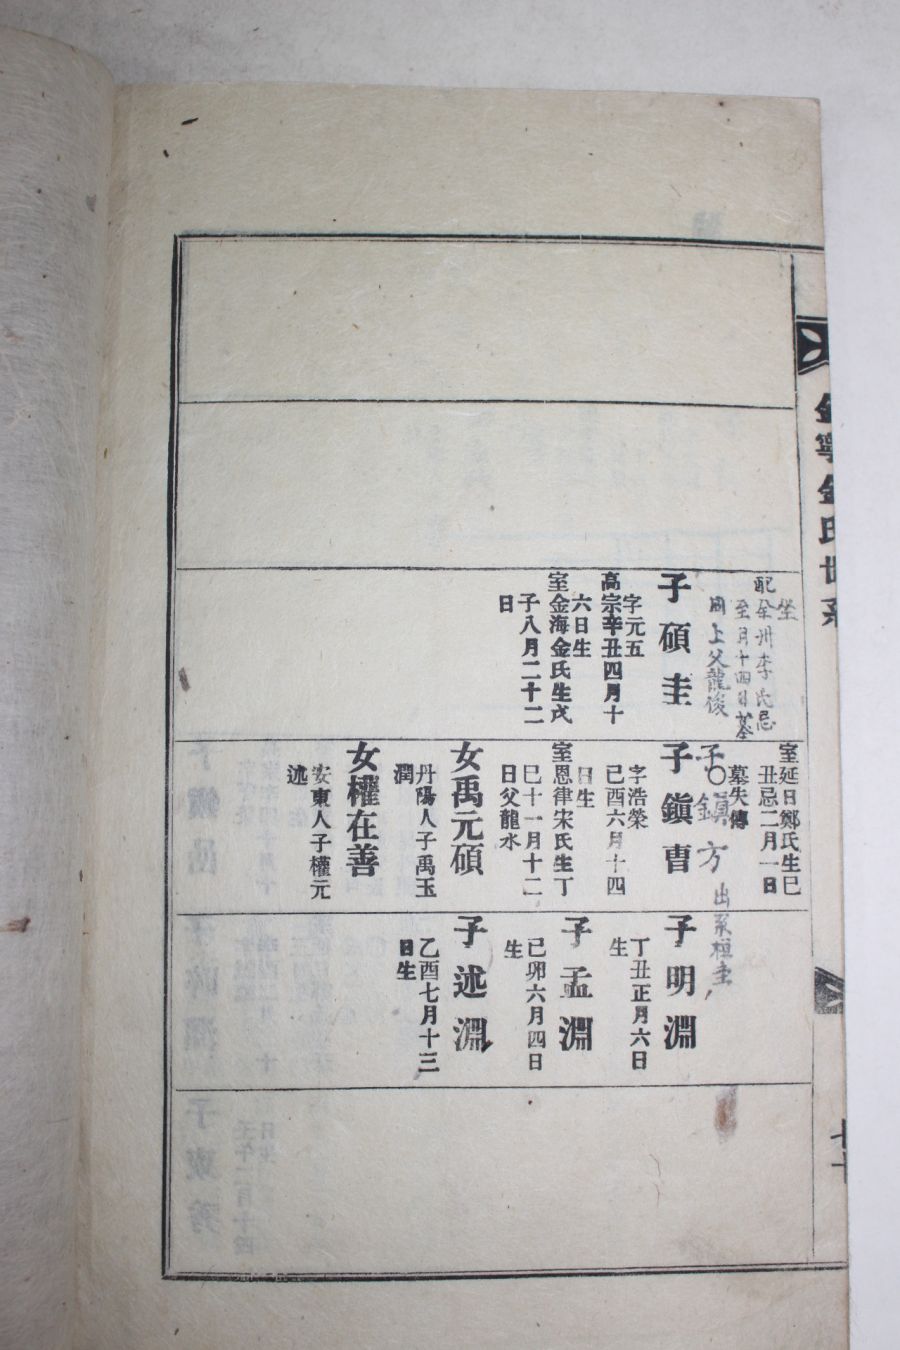 金寧金氏世系
坐
配全州李氏忌
至月十四日墓
同上父龍俊
子碩圭
字元五
高宗辛丑四月十
六日生
室金海金氏生戊
子八月二十二
日
室延日鄭氏生巳
丑忌二月一日
墓失傳
子○鎭方
出系桓圭
子鎭曺
字浩榮
己酉六月十四
日生
室恩律宋氏生丁
巳十一月十二
日父龍水
女禹元碩
丹陽人子禹玉
潤
女權在善
安東人子權元
述
子明淵
丁丑正月六日
生
子孟淵
己卯六月四日
生
子述淵
乙酉七月十三
日生